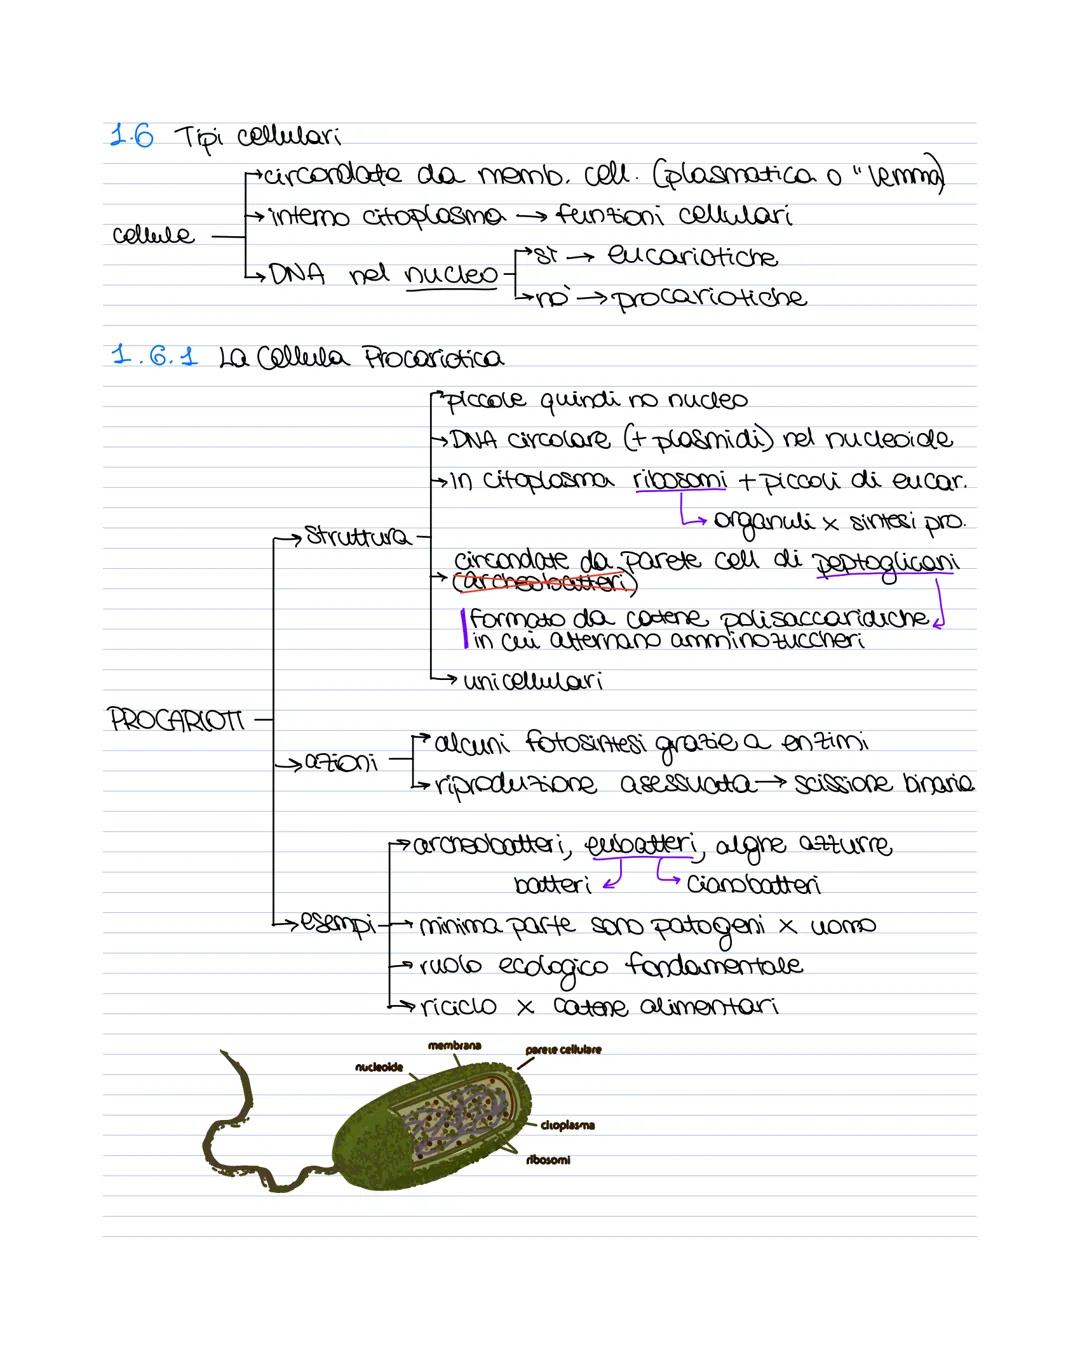 1.6 Tipi cellulari
→circondate da memb. cell. (plasmatica o "lemma)
cellule →interno citoplasma → funzioni cellulari
→DNA nel nucleo →sì → eucariotiche
→no → procariotiche
1.6.1 La Cellula Procariotica
→piccole quindi no nucleo
→DNA circolare (+ plasmidi) nel nucleoide
→in citoplasma ribosomi + piccoli di eucar.
→ organuli x sintesi pro.
→struttura
→ circondate da parete cell di peptoglicani
(archeobatteri)
formato da catene polisaccaridiche
in cui alternano amminozuccheri
→ unicellulari
PROCARIOTI
→azioni →alcuni fotosintesi grazie a enzimi
→riproduzione asessuata → scissione binaria
→archeobatteri, eubatteri, alghe azzurre
batteri cianobatteri
→esempi → minima parte sono patogeni x uomo
→ ruolo ecologico fondamentale
→ riciclo x catene alimentari
membrana
parete cellulare
nucleoide
citoplasma
ribosomi